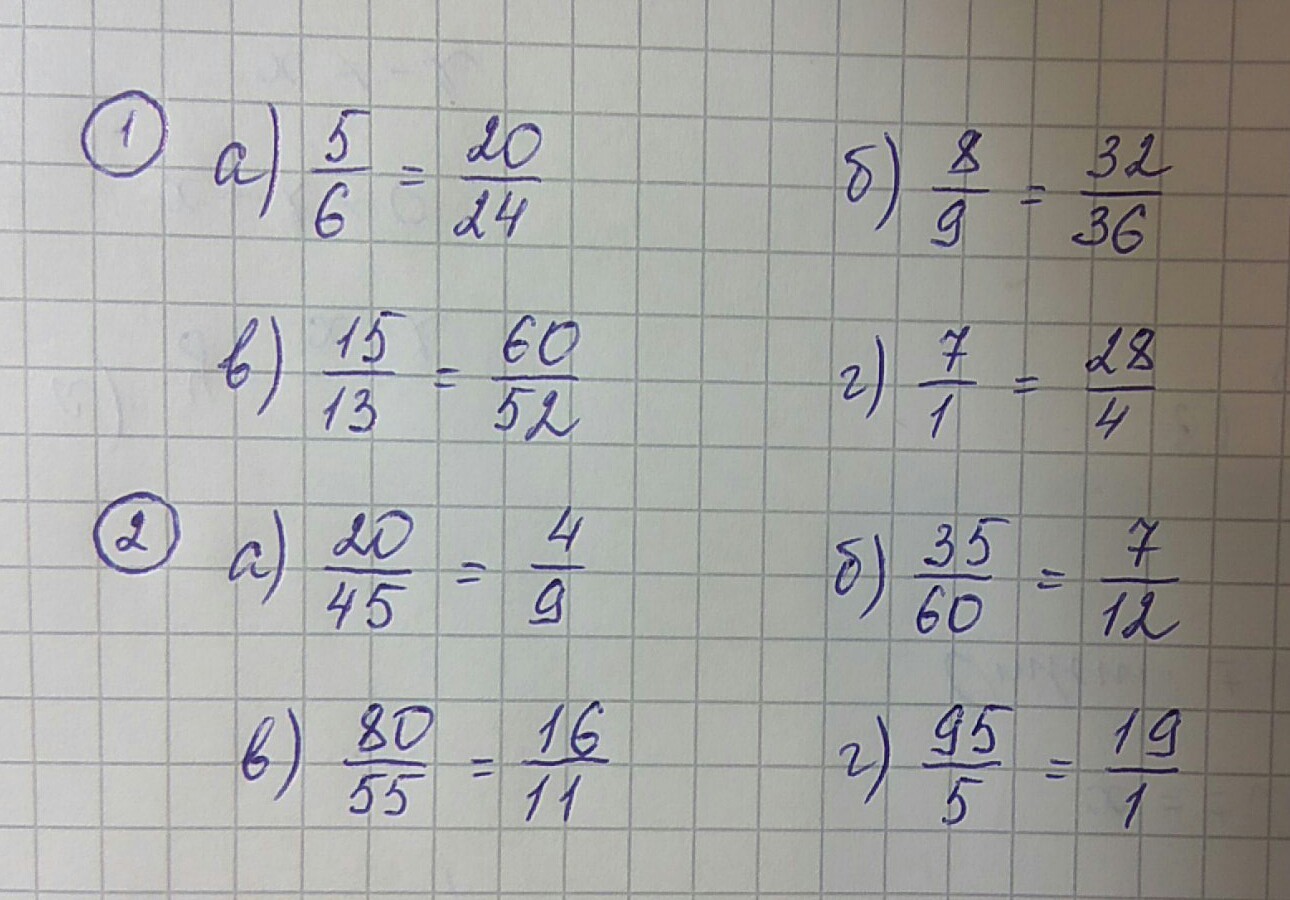 ① а) 5/6 = 20/24 б) 8/9 = 32/36
в) 15/13 = 60/52 г) 7/1 = 28/4
② а) 20/45 = 4/9 б) 35/60 = 7/12
в) 80/55 = 16/11 г) 95/5 = 19/1